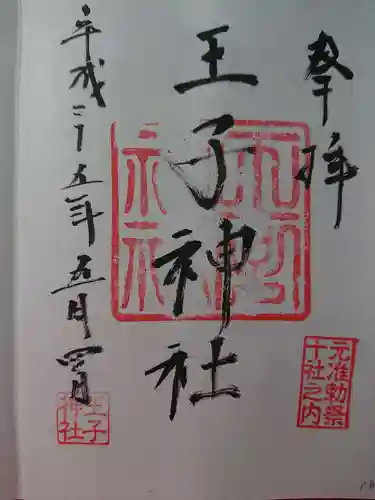 奉拝
王子神社
元准勅祭
十社之内
平成二十五年五月四日
王子
神社